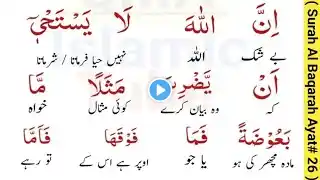 اِنَّ اللّٰهَ لَا يَسْتَحْيٖٓ
بے شک اللہ نہیں حیا فرماتا / شرماتا
اَنْ يَّضْرِبَ مَثَلًا مَّا
کہ وہ بیان کرے کوئی مثال خواہ
بَعُوْضَةً فَمَا فَوْقَهَا فَاَمَّا
مادہ مچھر کی ہو یا جو اوپر ہے اس کے تو رہے
( Surah Al Baqarah Ayat# 26 )